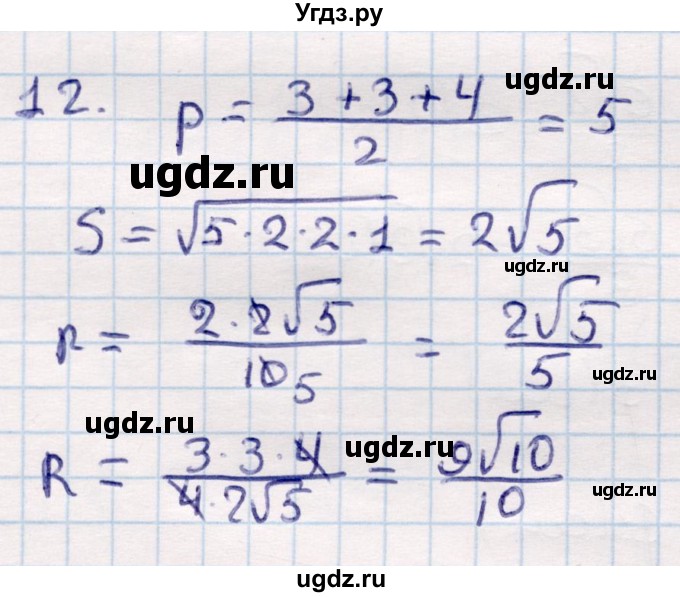 Угдз.ру
12. p = (3 + 3 + 4)/2 = 5
ugdz.ru
ugdz.ru
S = √(5 · 2 · 2 · 1) = 2√5
ugdz.ru
r = (2 · 2√5)/(10 5) = 2√5/5
ugdz.ru
ugdz.ru
ugdz.ru
R = (3 · 3 · 4)/(4 · 2√5) = 9√10/10
ugdz.ru
ugdz.ru
ugdz.ru